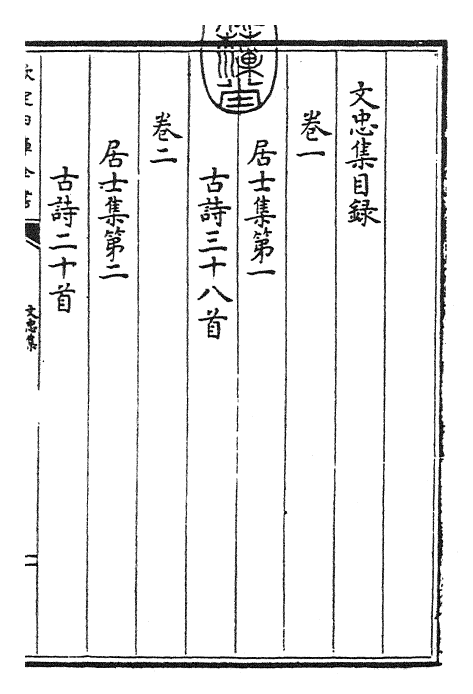 文忠集目録
卷一
居士集第一
古詩三十八首
卷二
居士集第二
古詩二十首
欽定四庫全書
文忠集